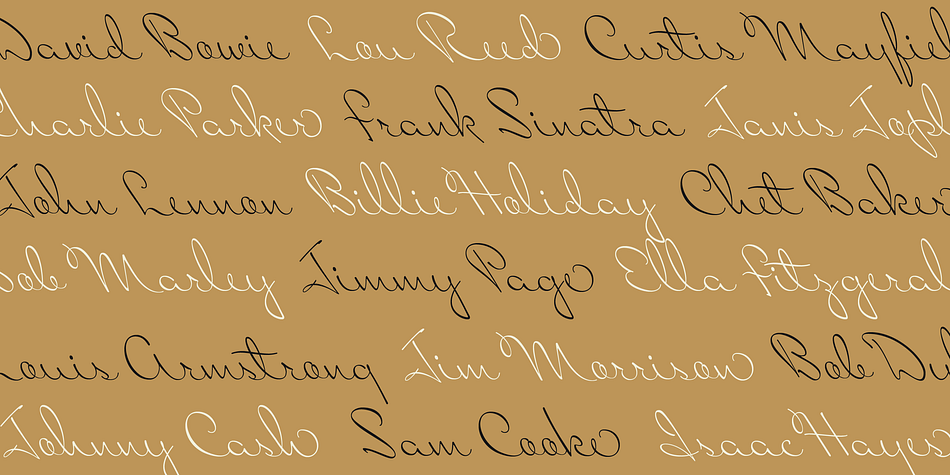 David Bowie Lou Reed Curtis Mayfiel
Charlie Parker Frank Sinatra Janis Jopl
John Lennon Billie Holiday Chet Baker
Bob Marley Jimmy Page Ella Fitzgeral
Louis Armstrong Jim Morrison Bob Dy
Johnny Cash Sam Cooke Isaac Hayes